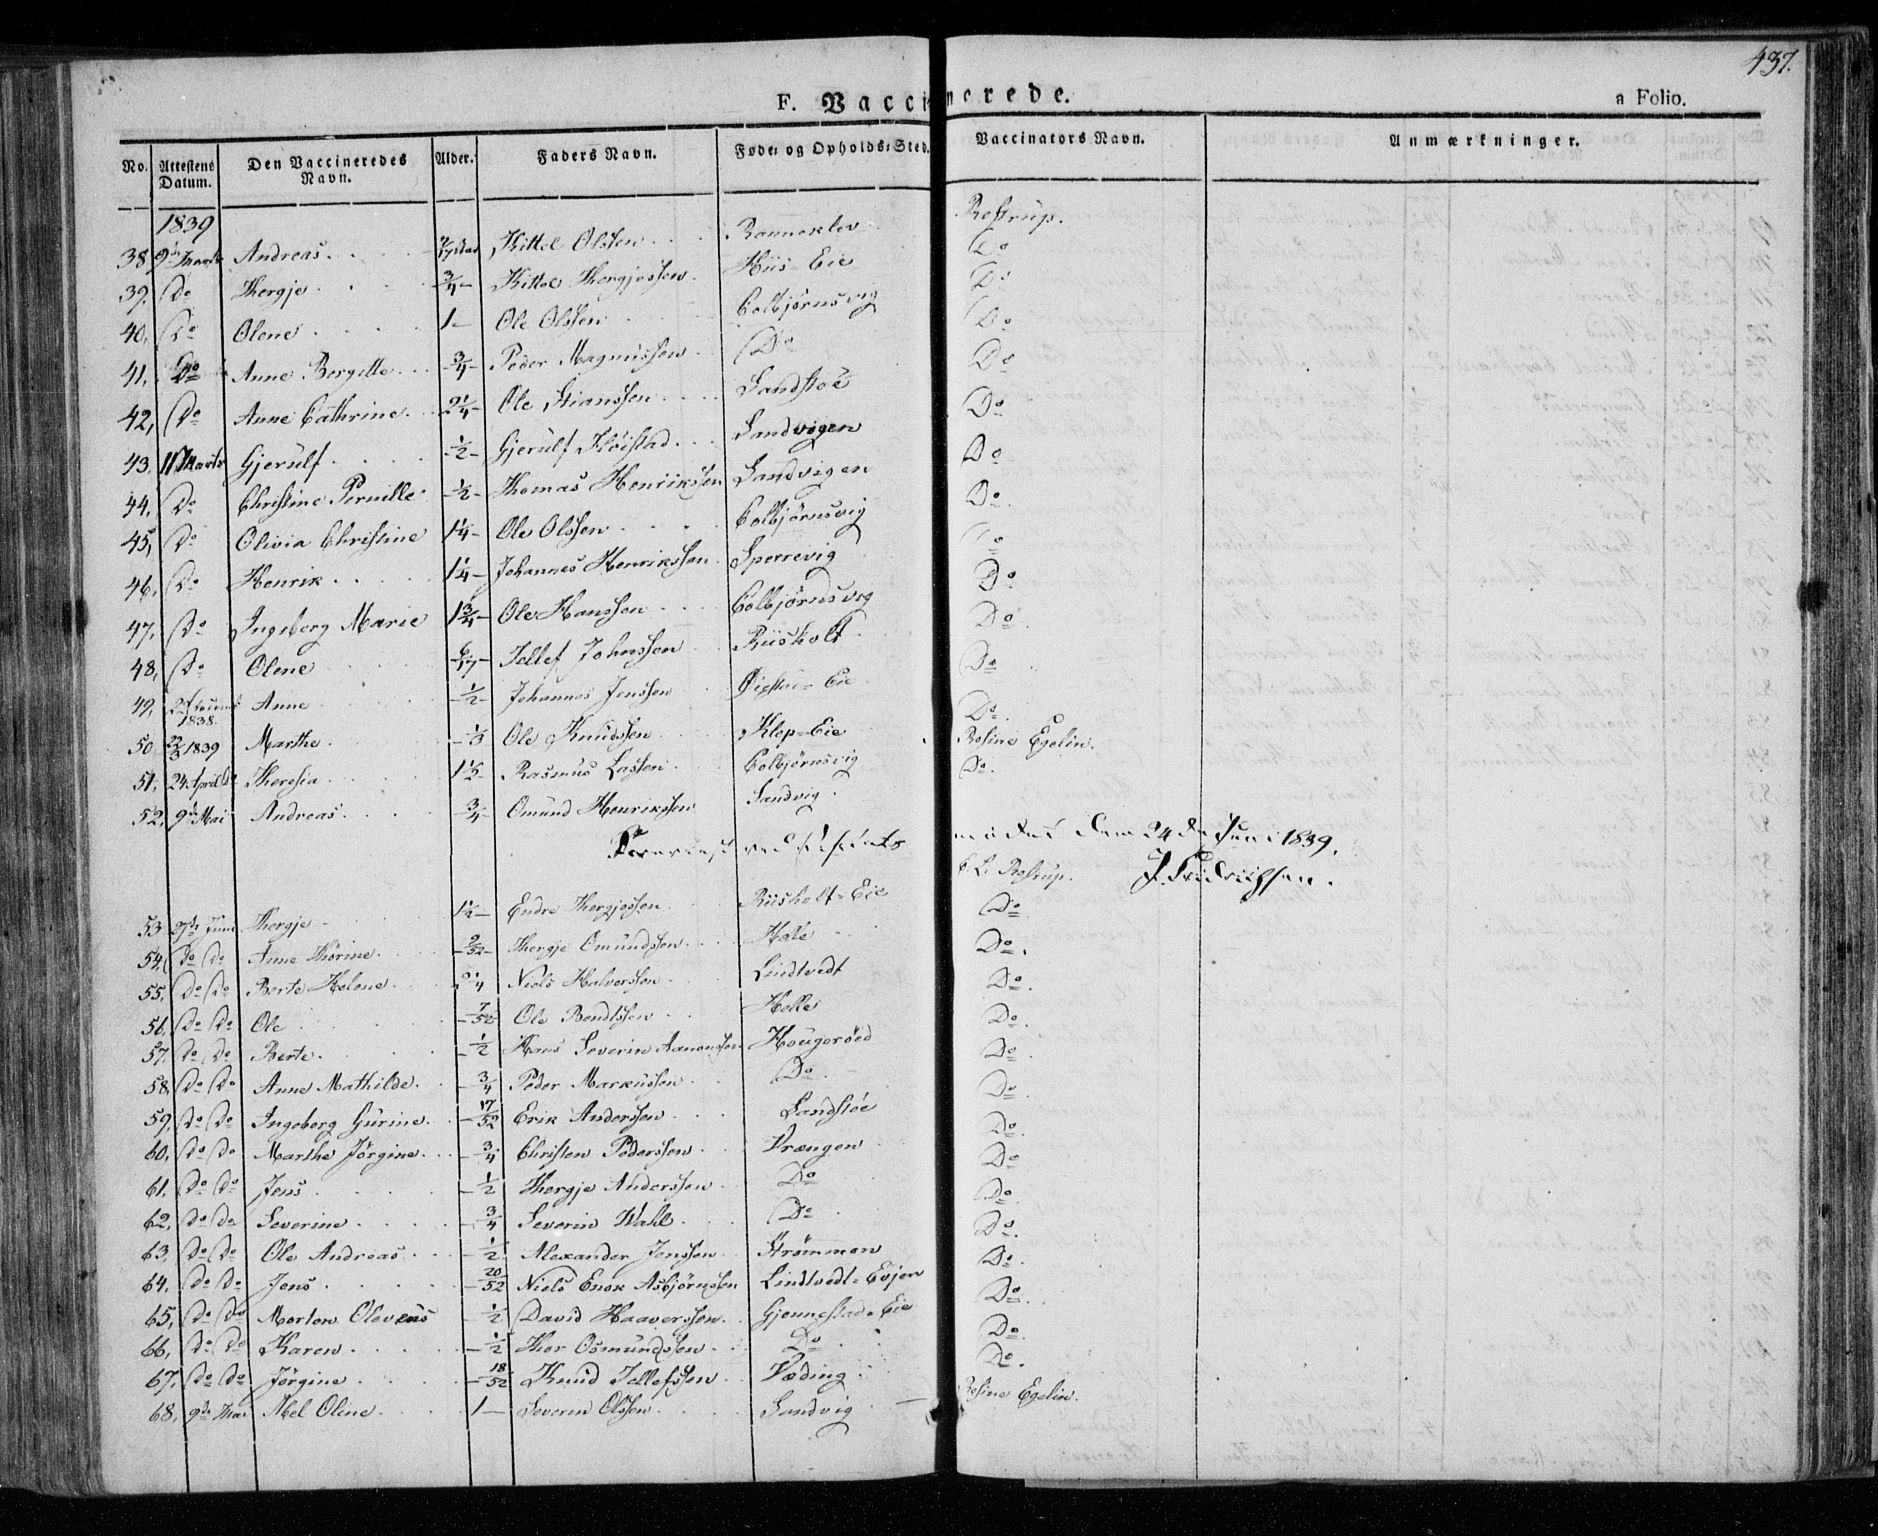 437.
F. Vaccinerede. a Folio.
No. Attestens Datum. Den Vaccineredes Navn. Alder. Faders Navn. Føde- og Opholds-Sted. Vaccinators Navn. Anmærkninger.
1839
38. 9de Andreas. Kittel Olssen Ronneklev Restrup.
39. Do Thergje 3/4 Kittel Thergjessen. Riis-Eie Do
40. Do Olene 1 Ole Olssen Colbjørnsvig Do
41. Do Anne Bergitte 3/4 Peder Magnussen Do Do
42, Do Anne Cathrine. 2 1/4 Ole Stianssen Sandstøe Do
43. 11 Marts Gjerulf 1/2 Gjerulf Sandvigen Do
44, Do Christine Pernille 1/2 Thomas Henrikssen Sandvigen Do
45, Do Olivia Christine 1 1/4 Ole Olssen Colbjørnsvig Do.
46, Do Henrik 1 1/4 Johannes Henrikssen Sperrevig Do
47, Do Ingeborg Marie 1 3/4 Ole Hanssen Colbjørnsvig Do
48, Do Olene Tellef Johnssen Riisholt Do
49, 1838. Anne 1/2 Johannes Jenssen Eie Do
50. 1839 Marthe 1/3 Ole Knudssen Klep-Eie Do
51, 24 April Theresia 1 1/2 Rasmus Lassen Colbjørnsvig Rosine Egelin.
52, 9de Mai Andreas 3/4 Omund Henrikssen Sandvig Do.
den 24 de Juni 1839.
53. Juni Thergje 1 1/2 Endre Thergjessen Riisholt-Eie Restrup.
54, Do Do Anne Thorine 9/52 Thergje Omundssen Hale Do
55, Do Do Berte Helene 2 1/4 Niels Halvorssen Lindtvedt Do.
56. Do Do Ole 7/52 Ole Bendtssen Helle Do.
57. Do Do Berte. 1/2 Hans Severin Aanonssen Hougerøed Do.
58. Do Do Anne Mathilde 3/4 Peder Markussen Do Do
59, Do Do Ingeborg Gurine 17/52 Erik Anderssen Sandstøe Do
60, Do Do Marthe Jørgine 3/4 Christen Pederssen Vrængen Do
61, Do Do Jens 1/2 Thergje Anderssen Do Do
62, Do Do Severine 3/4 Severin Wahl Do Do
63, Do Do Ole Andreas 1/2 Alexander Jenssen Strømmen Do.
64, Do Do Jens 20/52 Niels Enok Asbjørnssen Lindtvedt-Evjen Do
65, Do Do Morten Olevens 1/2 David Haaverssen Gjennestad-Eie Do
66, Do Do Karen 1/2 Thor Osmundssen Do Do
67, Do Do Jørgine 18/52 Knud Tellefssen Væding Do.
68, 9de Mai Abel Oline 1 Severin Olssen Sandvig Rosine Egelin.